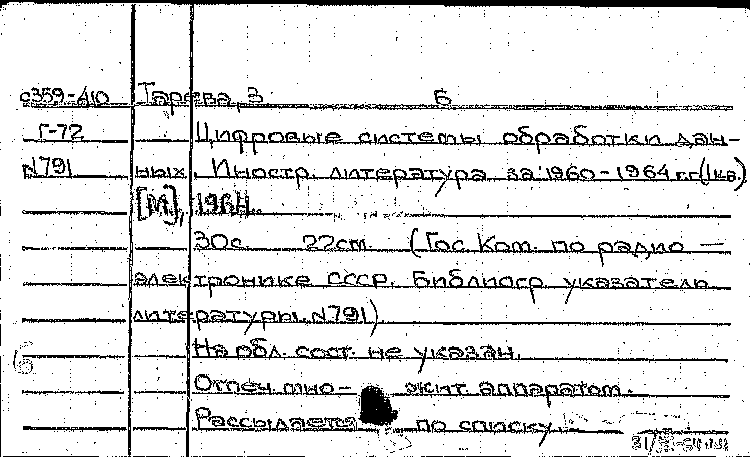 с359-410 Тарева, З Б
Г-72 Цифровые системы обработки дан-
N791 ных. Иностр. литература за 1960-1964 г.г. (I кв.)
[М], 1964.
30с. 22cm. (Гос. Ком. по радио —
электронике СССР. Библиогр. указатель
литературы. N791).
На обл. сост. не указан.
Отпеч. мно- жит. аппаратом.
Рассылается по списку